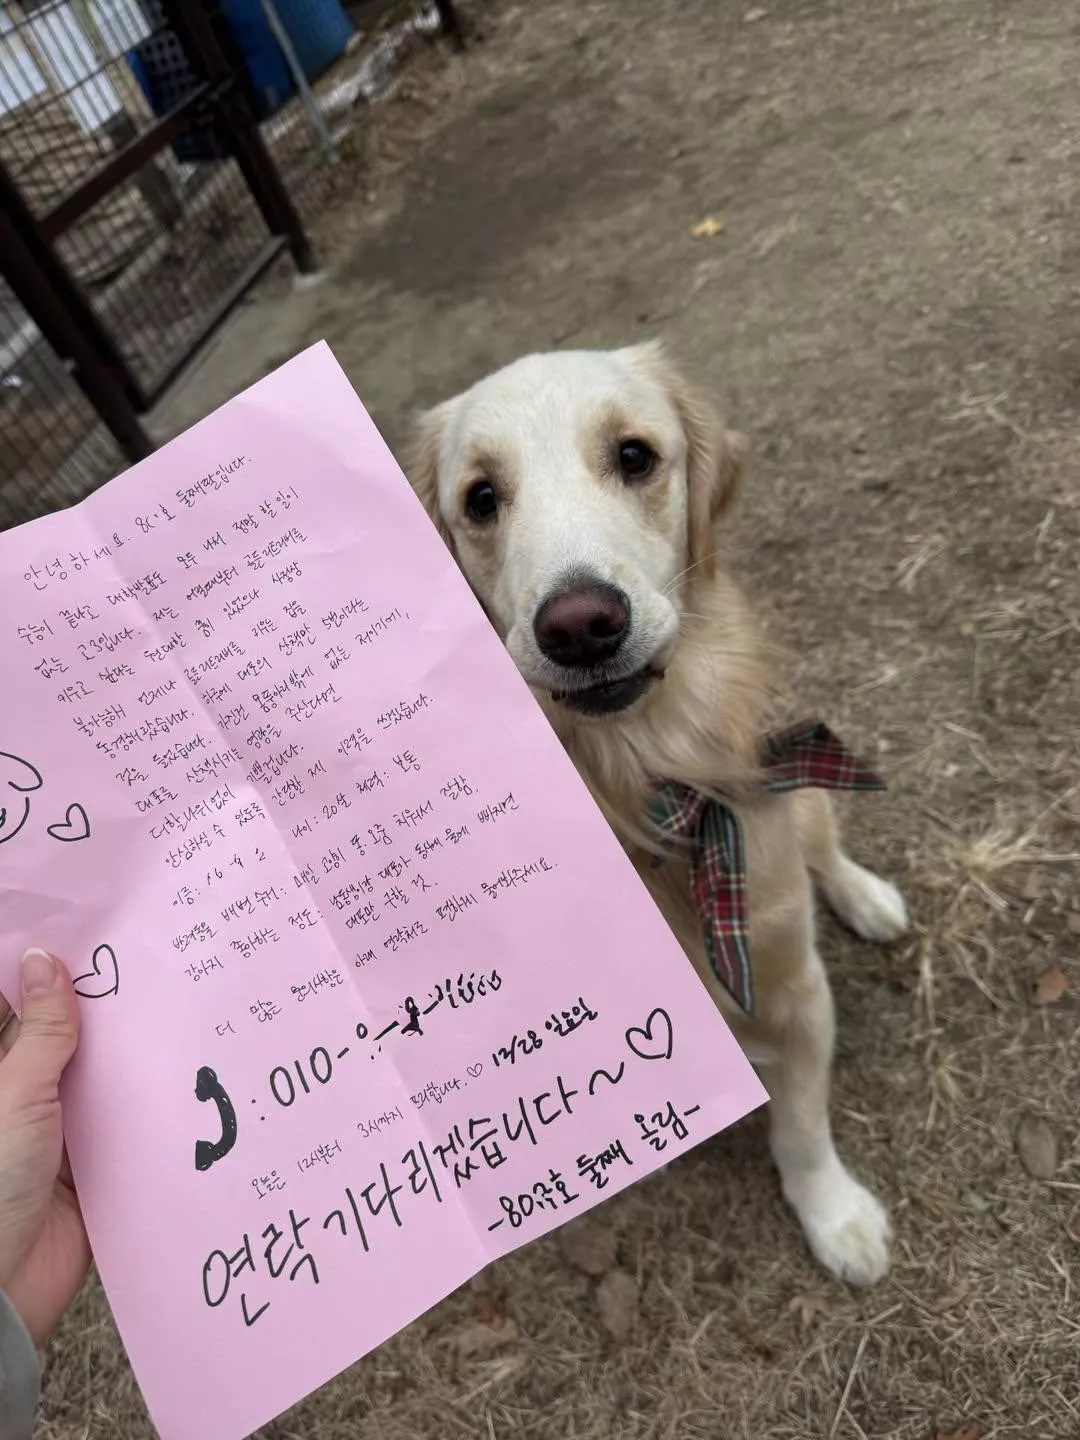 안녕하세요. 80 호 둘째딸입니다.
수능이 끝나고 대학발표도 모두 나서 정말 할 일이
없는 고3입니다. 저는 어렸때부터 골든리트리버를
키우고 싶다는 원대한 꿈이 있었으나 사정상
불가능해 언제나 골든리트리버를 키우는 집을
동경해왔습니다. 하루에 대포의 산책만 5번이라는
것을 들었습니다. 가진건 몸뚱아리밖에 없는 저이기에,
대포를 산책시키는 영광을 주신다면
더할나위없이 기쁠겁니다.
안심하실 수 있도록 간단한 제 이력을 쓰겠습니다.
이름: 나이: 20살 체력: 보통
반려동물 배변 수거: 매일 고양이 똥.오줌 치워서 잘함.
강아지 좋아하는 정도: 남동생이랑 대포가 동시에 물에 빠지면
대포만 구할 것.
더 많은 문의사항은 아래 연락처로 편하게 물어봐주세요.
: 010-
오늘은 12시부터 3시까지 프리합니다.♡ 12/28 일요일
연락 기다리겠습니다~♡
-80 호 둘째 올림-